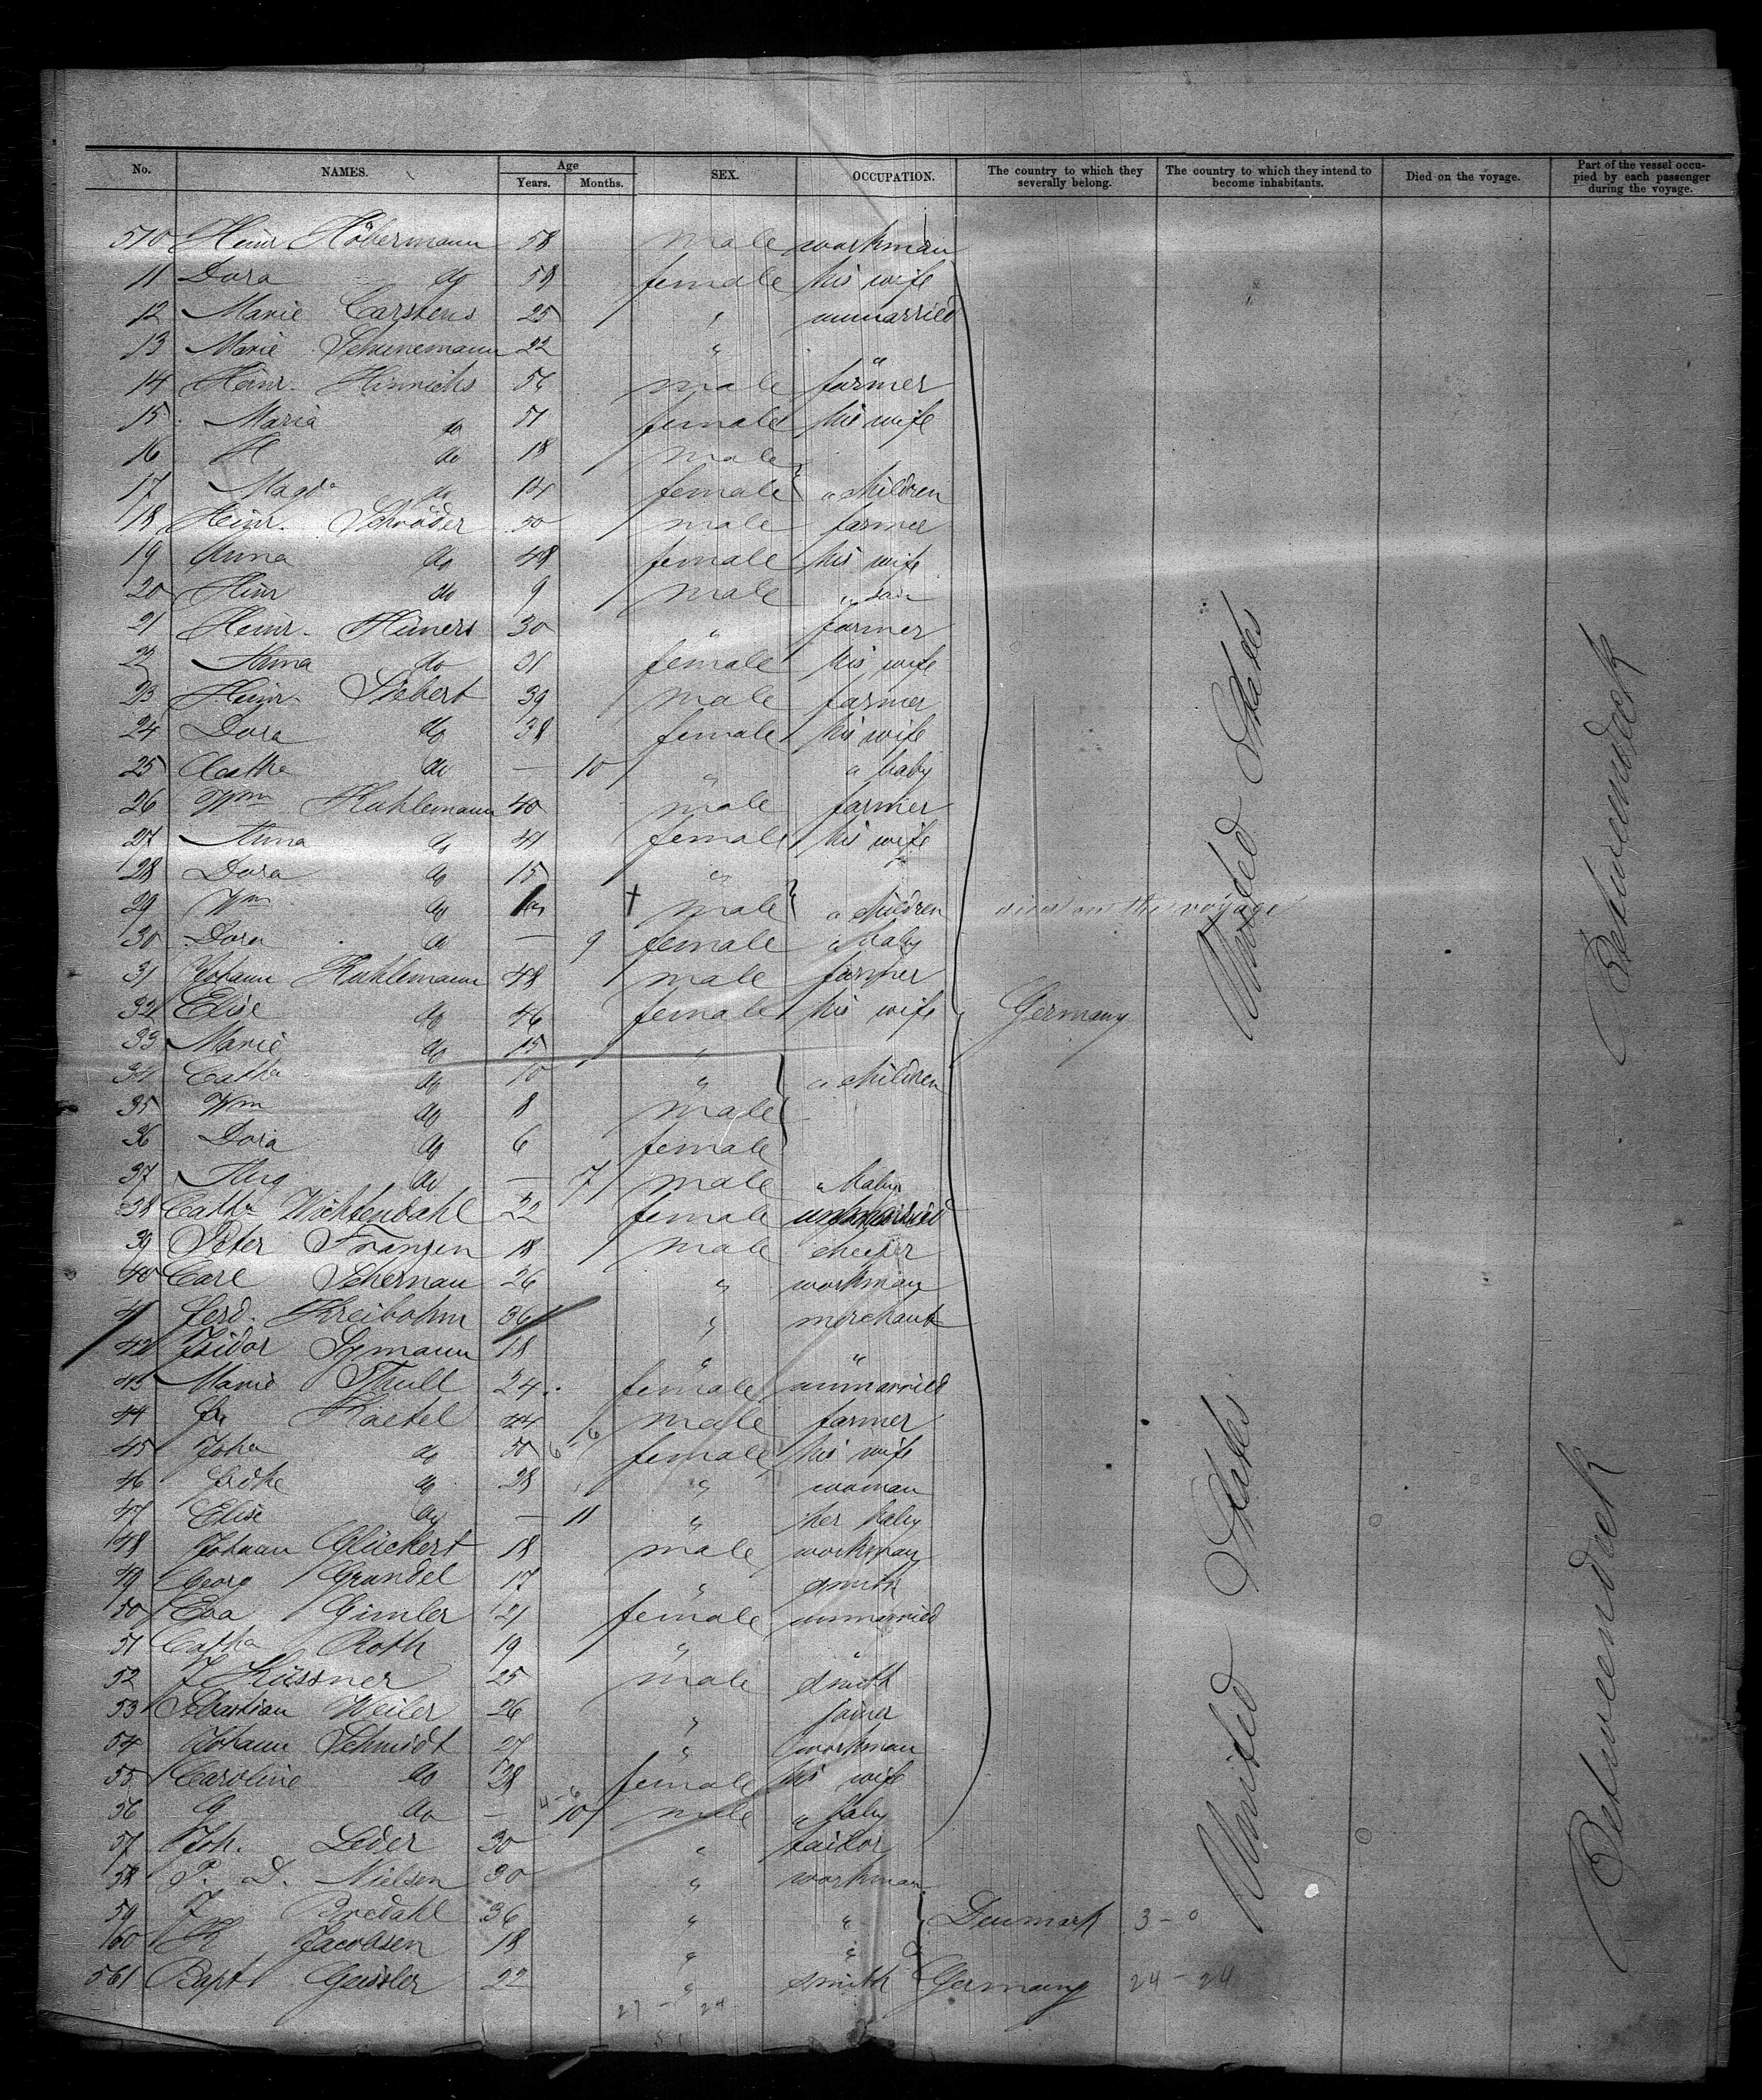 No. NAMES. Age Years. Months. SEX. OCCUPATION. The country to which they severally belong. The country to which they intend to become inhabitants. Died on the voyage. Part of the vessel occupied by each passenger during the voyage.
510 Heinr Höbermann 58 male workman
11 Dora do 58 female his wife
12 Marie Carstens 25 " unmarried
13 Marie Schunemann 22 " "
14 Heinr. Hinrichs 56 male farmer
15 Maria do 51 female his wife
16 H do 18 male
17 Magda do 14 female " children
18 Heinr. Schröder 50 male farmer
19 Anna do 48 female his wife
20 Heinr do 9 male " son
21 Heinr. Heiners 30 " farmer
22 Anna do 31 female his wife
23 Heinr. Siebert 39 male farmer
24 Dora do 38 female his wife
25 do — 10 " " baby
26 Wm Kuhlemann 40 male farmer
27 Anna do 41 female his wife
28 Dora do 15 "
29 Wm do † male " children died on the voyage
30 Dora do — 9 female " baby
31 Johann Kuhlemann 48 male farmer
32 Elise do 46 female his wife Germany
33 Marie do 15 "
34 Catha do 10 " " children
35 Wm do 8 male
36 Dora do 6 female
37 Aug do — 7 male " baby
38 Catha Wichtendahl 22 female unmarried
39 Peter Franzen 18 male
40 Carl Schernau 26 " workman
41 Ferd. Kreibohm 36 " merchant
42 Isidor Symann 18 " "
43 Marie Thull 24 female unmarried
44 Fr Kaetel 44 male farmer
45 Joha do 50 female his wife
46 Frdke do 28 " woman
47 Elise do — 11 " her baby
48 Johann Glückert 18 male workman
49 Georg Grundel 17 " smith
50 Eva Gimler 21 female unmarried
51 Catha Roth 19 " "
52 J Küssner 25 male smith
53 Sebastian Weiler 26 " joiner
54 Johann Schmidt 27 " workman
55 Caroline do 28 female his wife
56 G do — 10 male " baby
57 Joh. Leder 30 " tailor
58 P. D. Nielsen 30 " workman
59 J Bredahl 36 " " Denmark 3 - 0
60 H Jacobsen 18 " "
561 Bapt Geissler 22 " smith Germany 24 - 24
27 - 24
United States
United States
Betweendeck
Betweendeck